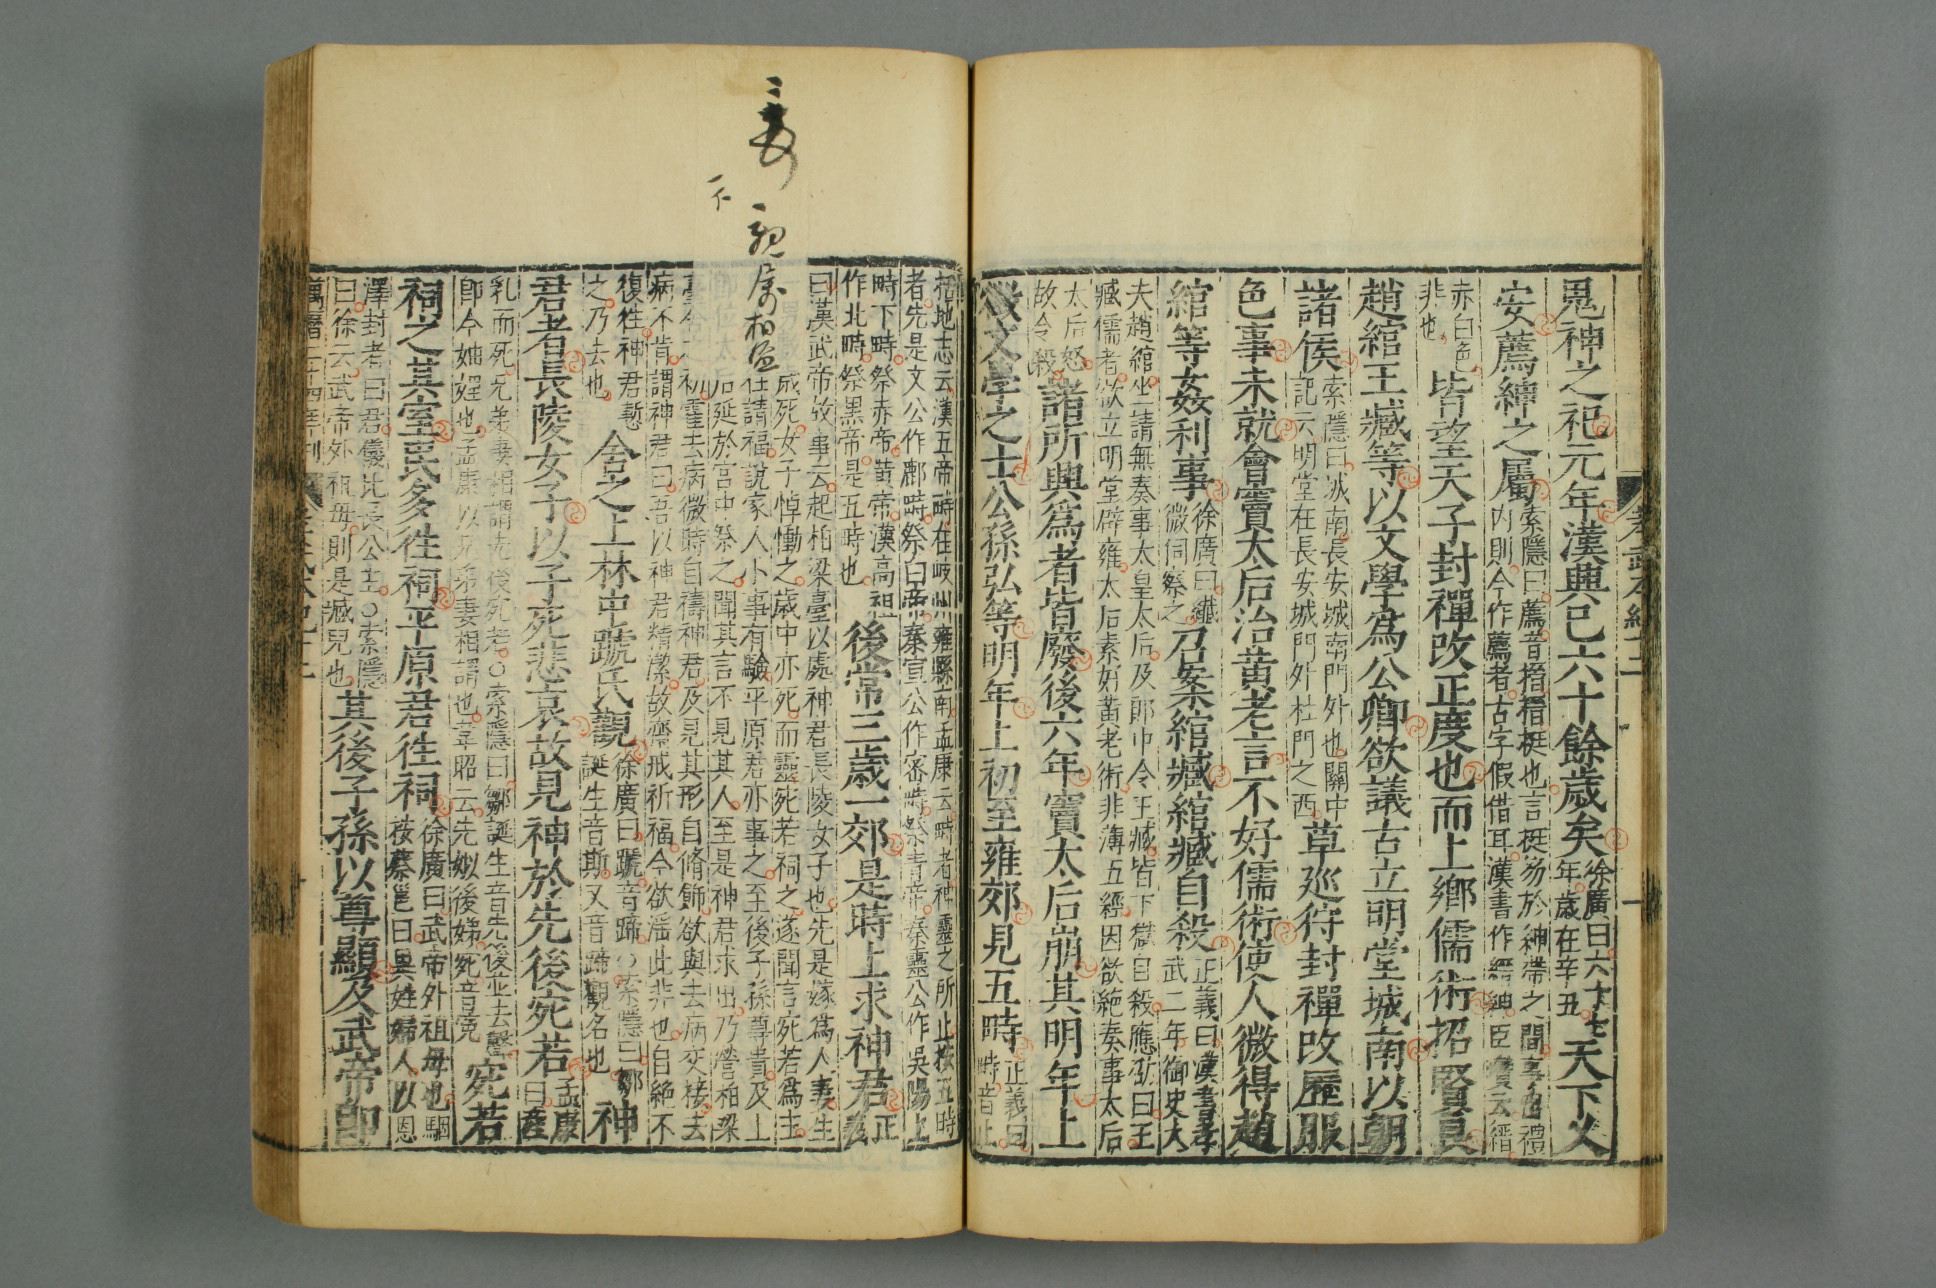 鬼神之祀元年漢興已六十餘歲矣徐廣曰六十七年歲在辛丑天下乂
安薦紳之屬索隱曰薦音搢搢挺也言挺笏於紳帶之間事出禮內則今作薦者古字假借耳漢書作縉紳臣瓚云縉
赤白色非也皆望天子封禪改正度也而上鄉儒術招賢良
趙綰王臧等以文學為公卿欲議古立明堂城南以朝
諸侯索隱曰城南長安城南門外也關中記云明堂在長安城門外杜門之西草巡狩封禪改歷服
色事未就會竇太后治黃老言不好儒術使人微得趙
綰等姦利事徐廣曰纖微伺察之召案綰臧綰臧自殺正義曰漢書孝武二年御史大
夫趙綰坐請無奏事太皇太后及郎中令王臧皆下獄自殺應劭曰王臧儒者欲立明堂辟雍太后素好黃老術非薄五經因欲絕奏事太后
太后怒故令殺諸所興為者皆廢後六年竇太后崩其明年上
徵文學之士公孫弘等明年上初至雍郊見五畤正義曰畤音止
括地志云漢五帝畤在岐州雍縣南孟康云畤者神靈之所止按五畤者先是文公作鄜畤祭白帝秦宣公作密畤祭青帝秦靈公作吳陽上
畤下畤祭赤帝黃帝漢高祖作北畤祭黑帝是五畤也後常三歲一郊是時上求神君正義
曰漢武帝故事云起柏梁臺以處神君長陵女子也先是嫁為人妻生
男數歲死女子悼慟之歲中亦死而靈死若祠之遂聞言宛若為主
往請福說家人小事有驗平原君亦事之至後子孫尊貴及上
即位太后延於宮中祭之聞其言不見其人至是神君求出乃營柏梁
臺舍之初霍去病微時自禱神君及見其形自脩飾欲與去病交接去
病不肯謂神君曰吾以神君精潔故齋戒祈福今欲淫此非也自絕不
復往神君慙之乃去也舍之上林中蹏氏觀徐廣曰蹏音蹄○索隱曰鄒誕生音斯又音蹄觀名也神
君者長陵女子以子死悲哀故見神於先後宛若孟康曰產
乳而死兄弟妻相謂先後宛若○索隱曰鄒誕生音先後並去聲即今妯娌也孟康以兄弟妻相謂也韋昭云先姒後娣宛音冤宛若
祠之其室民多往祠平原君往祠徐廣曰武帝外祖母也駰按蔡邕曰異姓婦人以恩
澤封者曰君儀比長公主○索隱曰徐云武帝外祖母則是臧兒也其後子孫以尊顯及武帝即
孝武本紀十二
一
萬曆二十四年刊
孝武本紀十二
妻
親屬相通
一不